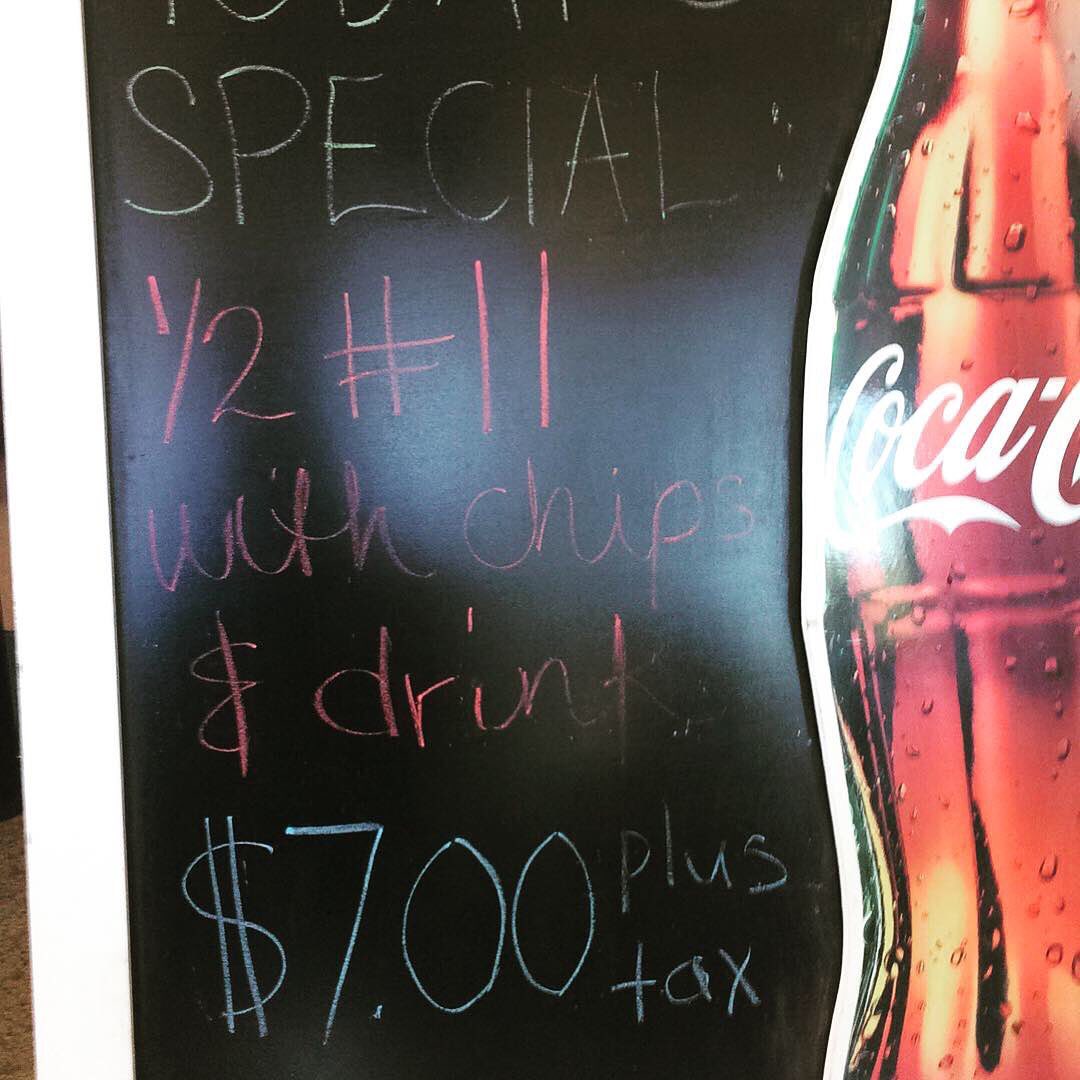 TODAY'S
SPECIAL:
1/2 #11
with chips
& drink
$7.00 plus
tax
Coca-C